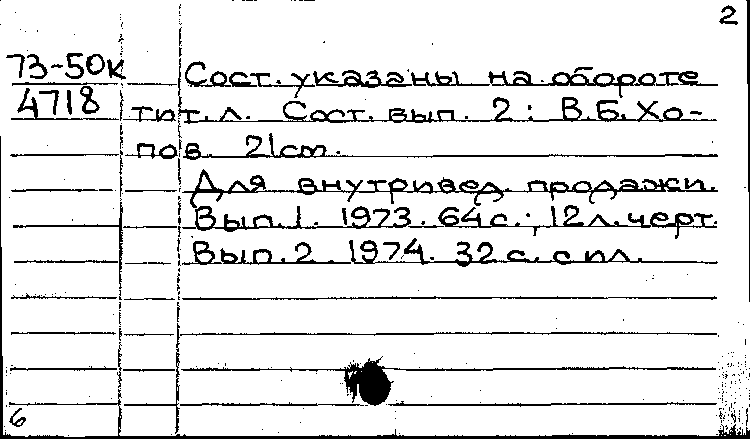 2
73-50к Сост. указаны на обороте
4718 тит. л. Сост. вып. 2: В.Б. Хо-
пов. 21 cm.
Для внутривед. продажи.
Вып. 1. 1973. 64 с.; 12 л. черт.
Вып. 2. 1974. 32 с. с ил.
6